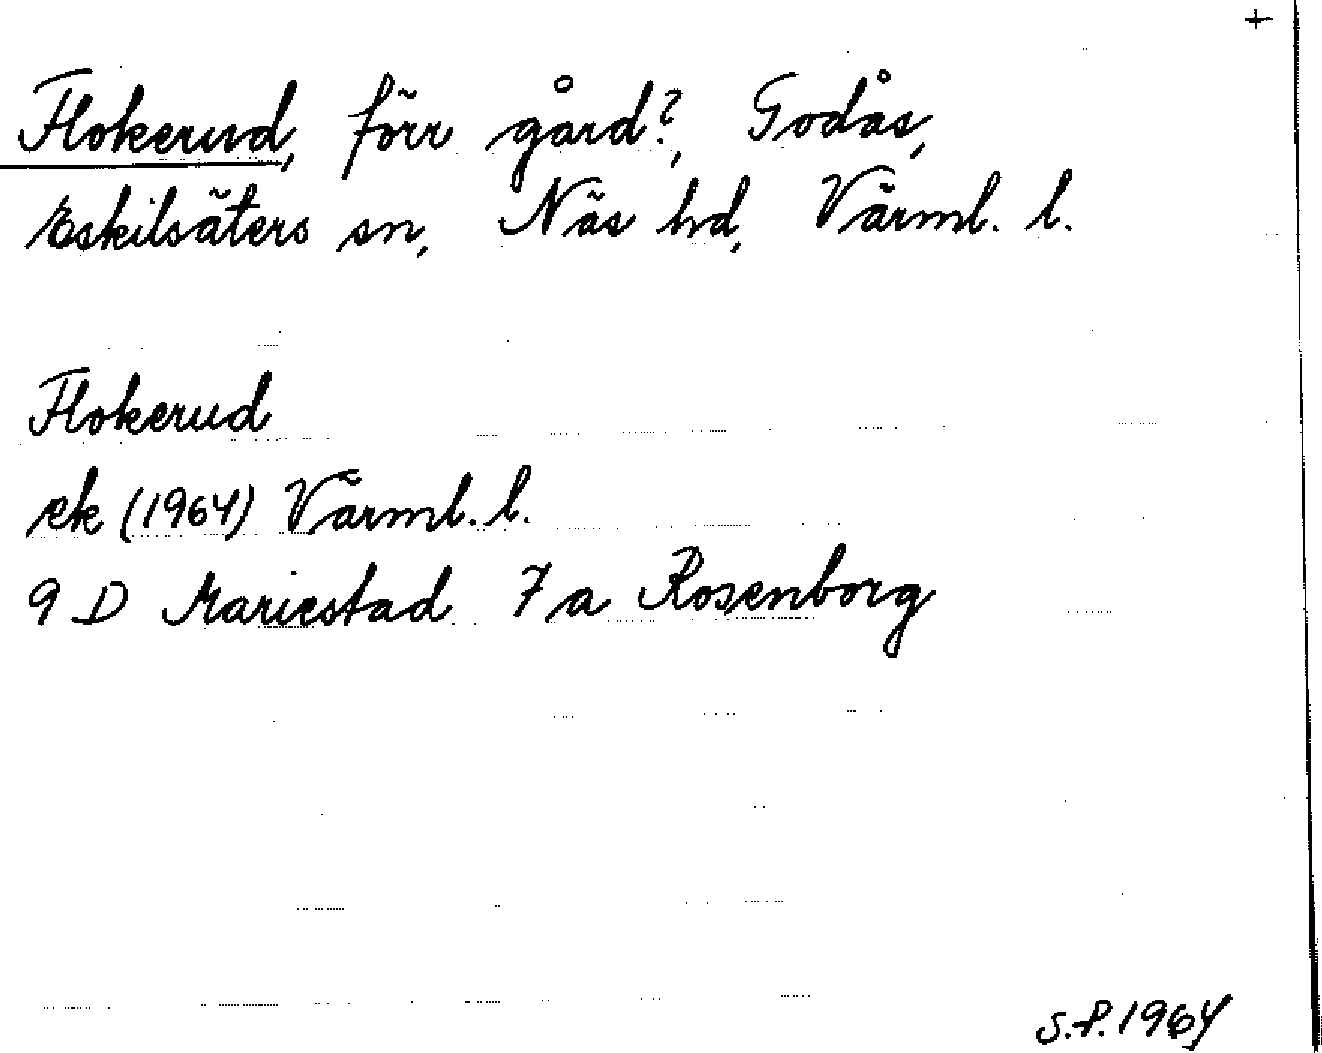 +
Flokerud, förr gård?, Godås,
Eskilsäters sn, Näs hd, Värml. l.
Flokerud
ek (1964) Värml. l.
9 D Mariestad 7 a Rosenborg
S.P. 1964